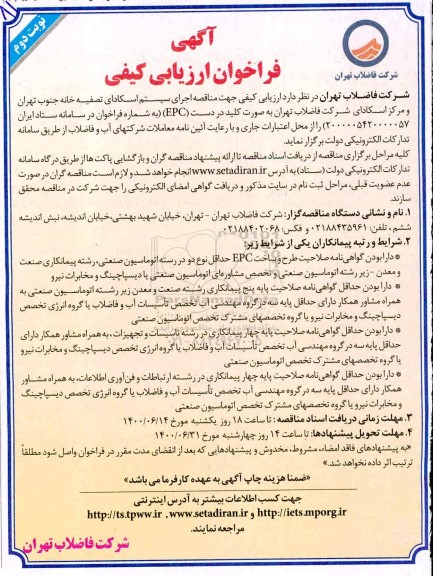 نوبت دوم
آگهی
فراخوان ارزیابی کیفی
شرکت فاضلاب تهران
شرکت فاضلاب تهران در نظر دارد ارزیابی کیفی جهت مناقصه اجرای سیستم اسکادای تصفیه خانه جنوب تهران
و مرکز اسکادای شرکت فاضلاب تهران به صورت کلید در دست (EPC) (به شماره فراخوان در سامانه ستاد ایران
۲۰۰۰۰۰۵۴۲۰۰۰۰۰۵۷) را از محل اعتبارات جاری و با رعایت آئین نامه معاملات شرکتهای آب و فاضلاب از طریق سامانه
تدارکات الکترونیکی دولت برگزار نماید.
کلیه مراحل برگزاری مناقصه از دریافت اسناد مناقصه تا ارائه پیشنهاد مناقصه گران و بازگشایی پاکت ها از طریق درگاه سامانه
تدارکات الکترونیکی دولت (ستاد) به آدرس www.setadiran.ir انجام خواهد شد و لازم است مناقصه گران در صورت
عدم عضویت قبلی، مراحل ثبت نام در سایت مذکور و دریافت گواهی امضای الکترونیکی را جهت شرکت در مناقصه محقق
سازند.
۱. نام و نشانی دستگاه مناقصه‌گزار: شرکت فاضلاب تهران - تهران، خیابان شهید بهشتی، خیابان اندیشه، نبش اندیشه
ششم ، تلفن: ۰۲۱۸۸۴۳۵۹۶۱ و فکس: ۰۲۱۸۸۴۰۲۰۶۸
۲. شرایط و رتبه پیمانکاران یکی از شرایط زیر:
* دارا بودن گواهی‌نامه صلاحیت طرح و ساخت EPC حداقل نوع دو در رسته اتوماسیون صنعتی، رشته پیمانکاری صنعت
و معدن - زیر رشته اتوماسیون صنعتی و تخصص مشاوره‌ای اتوماسیون صنعتی یا دیسپاچینگ و مخابرات نیرو
* دارا بودن حداقل گواهی‌نامه صلاحیت پایه پنج پیمانکاری رشته صنعت و معدن زیر رشته اتوماسیون صنعتی به
همراه مشاور همکار دارای حداقل پایه سه در گروه مهندسی آب تخصص تأسیسات آب و فاضلاب یا گروه انرژی تخصص
دیسپاچینگ و مخابرات نیرو یا گروه تخصصهای مشترک تخصص اتوماسیون صنعتی
* دارا بودن حداقل گواهی‌نامه صلاحیت پایه چهار پیمانکاری در رشته تاسیسات و تجهیزات ، به همراه مشاور همکار دارای
حداقل پایه سه در گروه مهندسی آب تخصص تأسیسات آب و فاضلاب یا گروه انرژی تخصص دیسپاچینگ و مخابرات نیرو
یا گروه تخصصهای مشترک تخصص اتوماسیون صنعتی
* دارا بودن حداقل گواهی‌نامه صلاحیت پایه چهار پیمانکاری در رشته ارتباطات و فن‌آوری اطلاعات، به همراه مشاور
همکار دارای حداقل پایه سه در گروه مهندسی آب تخصص تأسیسات آب و فاضلاب یا گروه انرژی تخصص دیسپاچینگ
و مخابرات نیرو یا گروه تخصصهای مشترک تخصص اتوماسیون صنعتی
۳. مهلت زمانی دریافت اسناد مناقصه : تا ساعت ۱۸ روز یکشنبه مورخ ۱۴۰۰/۰۶/۱۴
۴. مهلت تحویل پیشنهادها: تا ساعت ۱۴ روز چهارشنبه مورخ ۱۴۰۰/۰۶/۳۱
«به پیشنهادهای فاقد امضاء، مشروط، مخدوش و پیشنهادهایی که بعد از انقضای مدت مقرر در فراخوان واصل شود مطلقاً
ترتیب اثر داده نخواهد شد.»
«ضمنا هزینه چاپ آگهی به عهده کارفرما می باشد»
جهت کسب اطلاعات بیشتر به آدرس اینترنتی
http://iets.mporg.ir و www.setadiran.ir ، http://ts.tpww.ir
مراجعه نمایند.
شرکت فاضلاب تهران